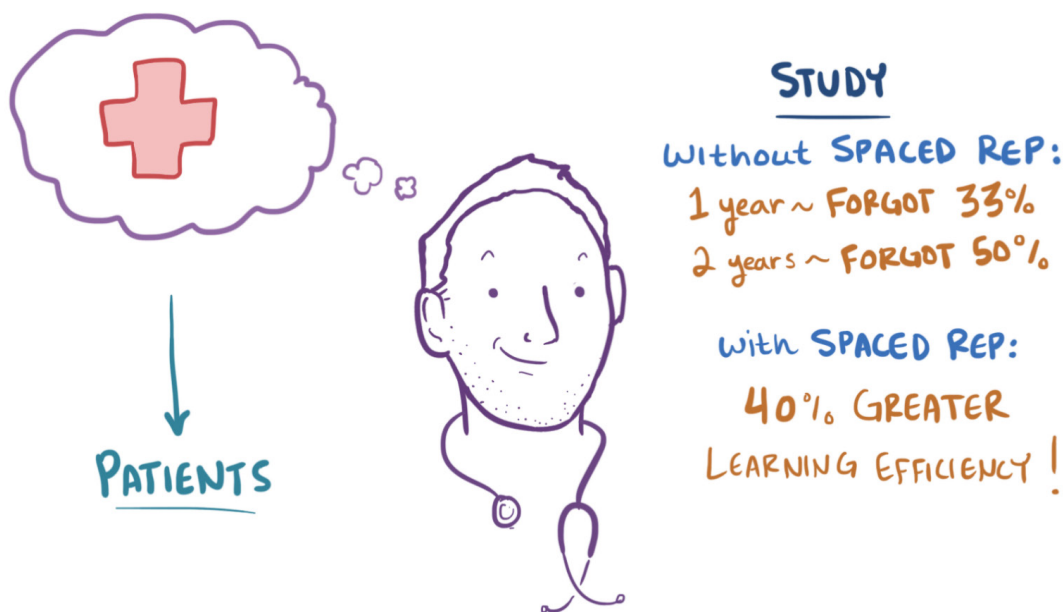 STUDY
without SPACED REP:
1 year ~ FORGOT 33%
2 years ~ FORGOT 50%
with SPACED REP:
40% GREATER
LEARNING EFFICIENCY!
PATIENTS